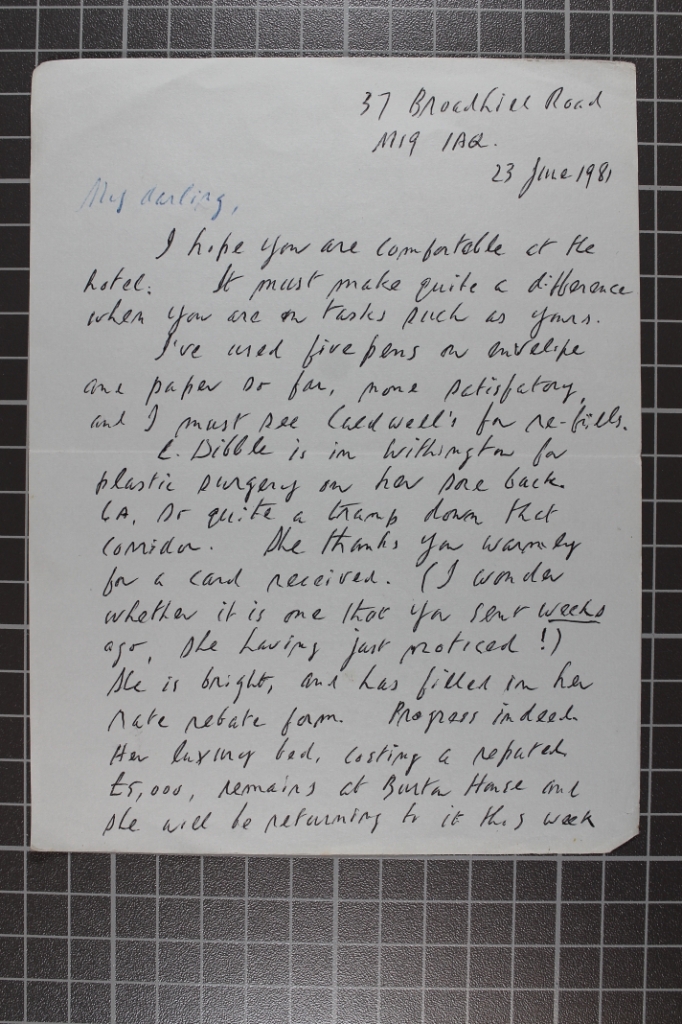 37 Broadhill Road
M19 1AQ.
23 June 1981
My darling,
I hope you are comfortable at the
hotel. It must make quite a difference
when you are on tasks such as yours.
I've used five pens on envelope
and paper so far, none satisfatory,
and I must see Caldwell's for re-fills.
C. Dibble is in Withington for
plastic surgery on her sore back.
6A, so quite a tramp down that
corridor. She thanks you warmly
for a card received. (I wonder
whether it is one that you sent weeks
ago, she having just noticed!)
She is bright, and has filled in her
rate rebate form. Progress indeed.
Her luxury bed, costing a reputed
£5,000, remains at Burton House and
she will be returning to it this week